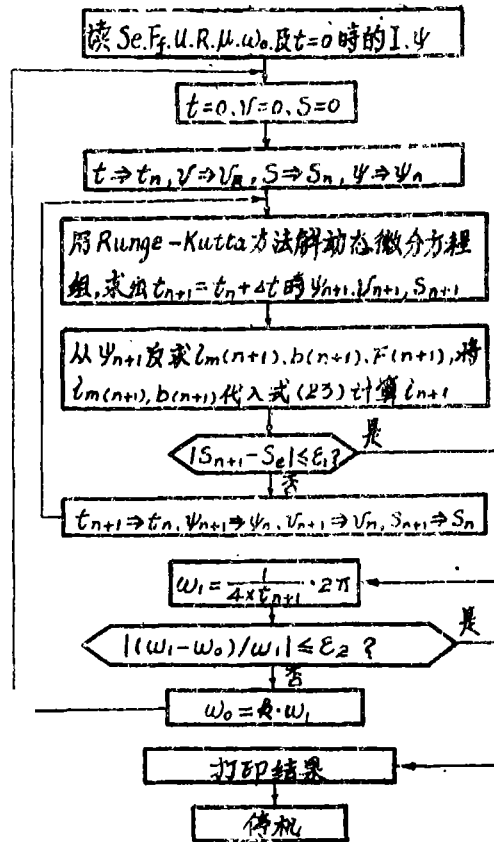 读Se.Ff.U.R.μ.ω₀.及t=0時的I.ψ
t=0.V=0.S=0
t⇒tn, V⇒Vn, S⇒Sn, ψ⇒ψn
用Runge-Kutta方法解动态微分方程
组,求出tn+1=tn+Δt時ψn+1.Vn+1, Sn+1
从ψn+1反求im(n+1).b(n+1).F(n+1),将
im(n+1).b(n+1)代入式(23)计算in+1
是
|Sn+1-Se|≤ε₁?
否
tn+1⇒tn.ψn+1⇒ψn.Vn+1⇒Vn, Sn+1⇒Sn
ω₁=1/(4×tn+1)·2π
是
|(ω₁-ω₀)/ω₁|≤ε₂?
否
ω₀=k·ω₁
打印结果
停机